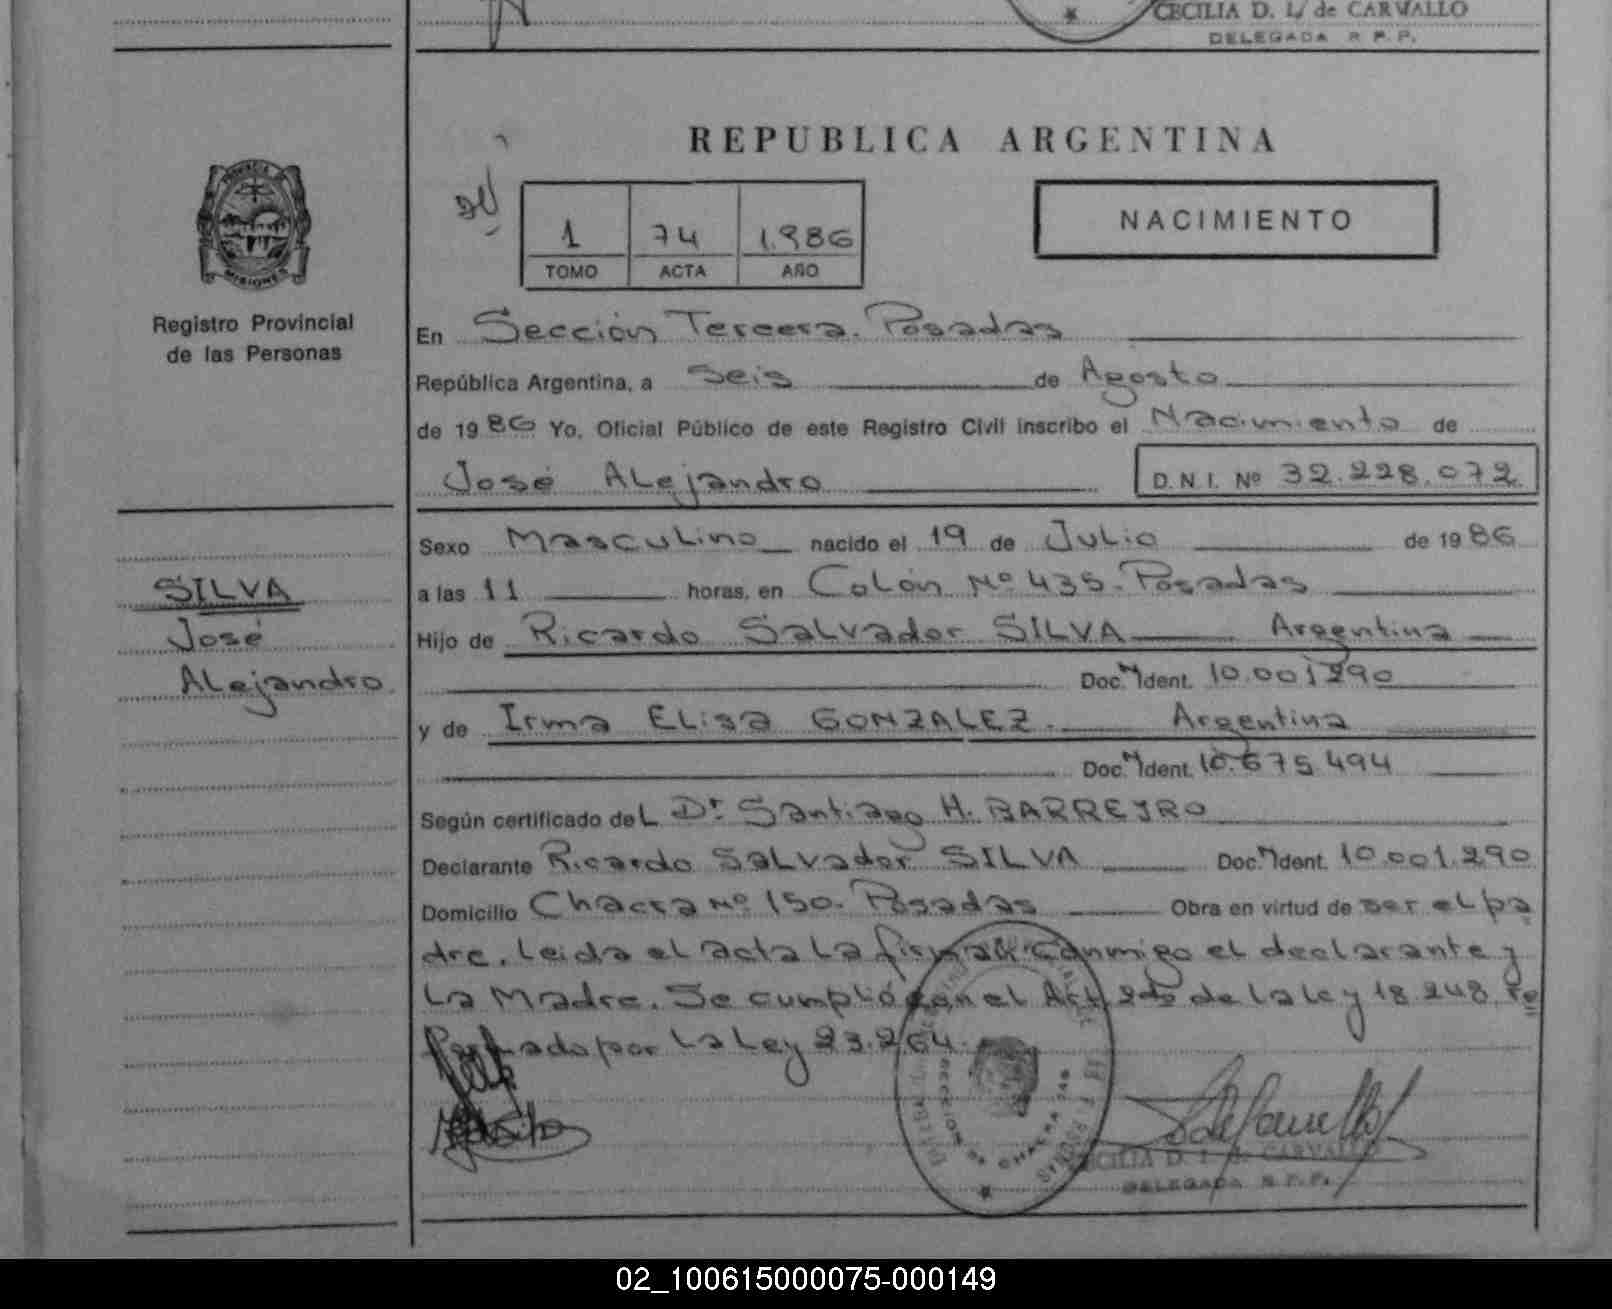 CECILIA D. L. de CARVALLO
DELEGADA R P. P.
REPUBLICA ARGENTINA
PROVINCIA DE
MISIONES
Registro Provincial
de las Personas
1 74 1.986
TOMO ACTA AÑO
NACIMIENTO
En Sección Tercera. Posadas
República Argentina, a Seis de Agosto
de 1986 Yo, Oficial Público de este Registro Civil inscribo el Nacimiento de
José Alejandro D.N.I. Nº 32.228.072
Sexo Masculino nacido el 19 de Julio de 1986
a las 11 horas, en Colón Nº 435. Posadas
Hijo de Ricardo Salvador SILVA Argentina
Doc. Ident. 10.001290
y de Irma Elisa GONZALEZ. Argentina
Doc. Ident. 10.675.494
Según certificado del Dr. Santiago H. BARREYRO
Declarante Ricardo Salvador SILVA Doc. Ident. 10.001.290
Domicilio Chacra Nº 150. Posadas Obra en virtud de ser el pa
dre. Leida el acta la firman conmigo el declarante y
La Madre. Se cumplió con el Art. 2do de la ley 18.248. Re
formado por La Ley 23.264.
SILVA
José
Alejandro
CECILIA D. L. de CARVALLO
DELEGADA R P. P.
02_100615000075-000149